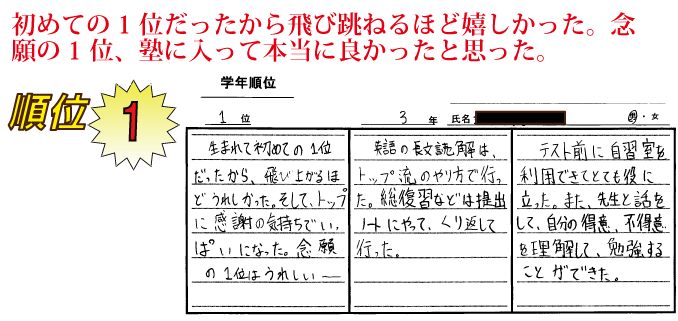 初めての1位だったから飛び跳ねるほど嬉しかった。念
願の1位、塾に入って本当に良かったと思った。
学年順位
順位 1
1 位 3 年 氏名 男・女
生まれて初めての1位
だったから、飛び上がるほ
どうれしかった。そして、トップ
に感謝の気持ちでいっ
ぱいになった。念願
の1位はうれしいー
英語の長文読解は、
トップ流のやり方で行っ
た。総復習などは提出
ノートにやって、くり返して
行った。
テスト前に自習室を
利用できてとても役に
立った。また、先生と話を
して、自分の得意、不得意
を理解して、勉強する
ことができた。